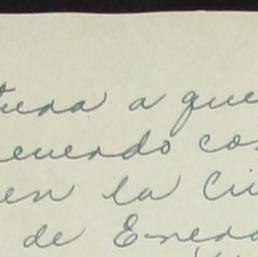 tura a que
cuerdo con
en la Ciu
de Enero